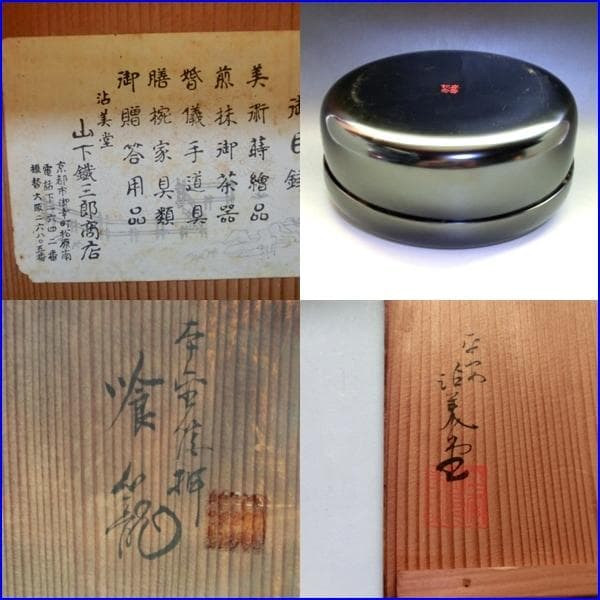 美術蒔繪品
煎抹御茶器
婚儀手道具
膳椀家具類
御贈答用品
沾美堂
山下鐵三郎商店
京都市御幸町松原南
電話下二六四二番
振替大阪二六八〇五番
喰籠
平安
沾美堂